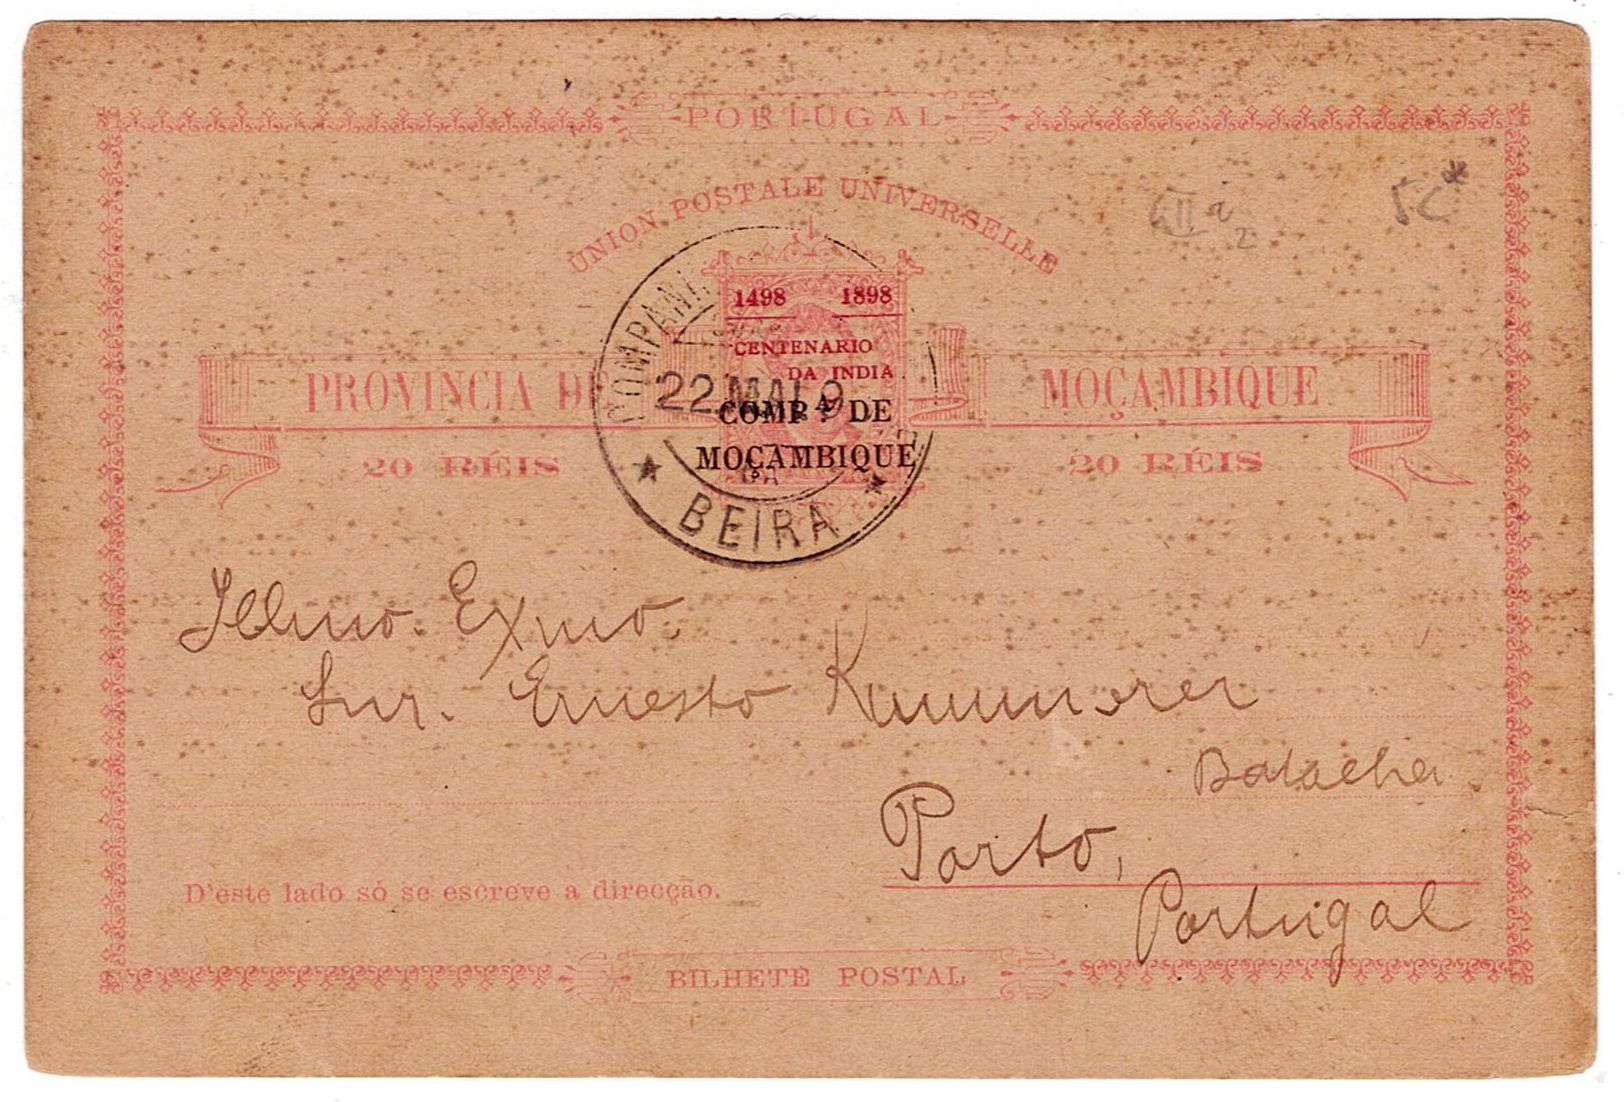 PORTUGAL
UNION POSTALE UNIVERSELLE
1498 1898
CENTENARIO
DA INDIA
PROVINCIA DE MOÇAMBIQUE
COMPᴬ DE
MOÇAMBIQUE
20 RÉIS 20 RÉIS
22 MAI 9
BEIRA
5C*
Illmo. Exmo.
Snr. Ernesto Kummerer
Batalha.
Porto,
Portugal
D'este lado só se escreve a direcção.
BILHETE POSTAL